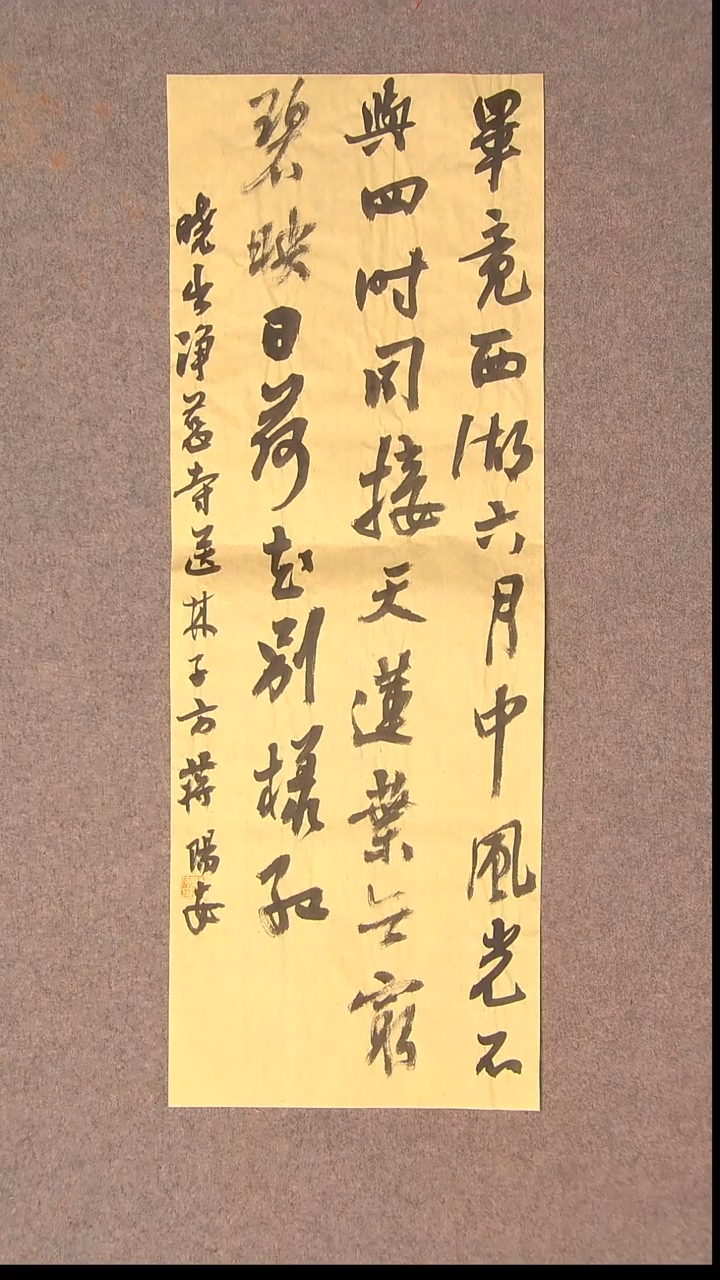 畢竟西湖六月中風光不
與四時同接天蓮葉無窮
碧映日荷花別樣紅
曉出淨慈寺送林子方蔣陽